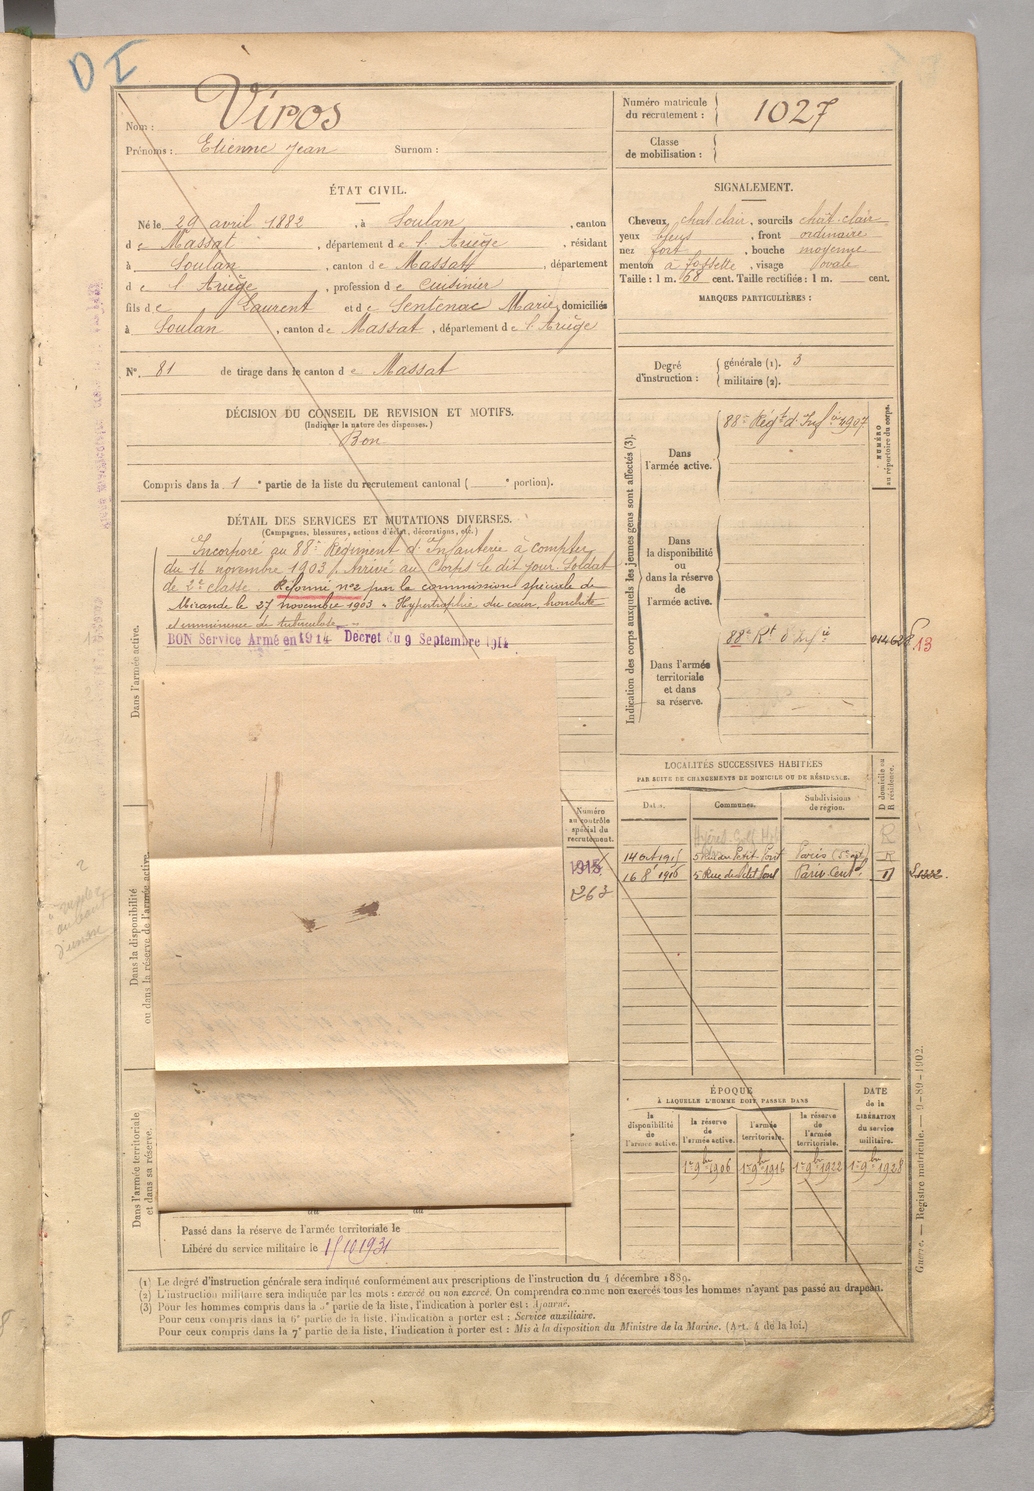 D I
Nom : Viros
Prénoms : Etienne Jean Surnom :
ÉTAT CIVIL.
Né le 29 avril 1882, à Soulan, canton
de Massat, département de l'Ariège, résidant
à Soulan, canton de Massat, département
de l'Ariège, profession de cuisinier
fils de Laurent et de Sentenac Marie, domiciliés
à Soulan, canton de Massat, département de l'Ariège
N°. 81 de tirage dans le canton de Massat
DÉCISION DU CONSEIL DE REVISION ET MOTIFS.
(Indiquer la nature des dispenses.)
Bon
Compris dans la 1e partie de la liste du recrutement cantonal ( e portion).
DÉTAIL DES SERVICES ET MUTATIONS DIVERSES.
(Campagnes, blessures, actions d'éclat, décorations, etc.)
Incorporé au 88e Régiment d'Infanterie à compter
du 16 novembre 1903. Arrivé au Corps le dit jour. Soldat
de 2e classe Réformé n°2 par la commission spéciale de
Mirande le 27 novembre 1903 - Hypertrophie du cœur, bronchite
et imminence de tuberculose
BON Service Armé en 1914 Decret du 9 Septembre 1914
Dans l'armée active.
Dans la disponibilité
ou dans la réserve de l'armée active.
Dans l'armée territoriale
et dans sa réserve.
Numéro
au contrôle
spécial du
recrutement.
1915
263
du au
Passé dans la réserve de l'armée territoriale le
Libéré du service militaire le 15 10 1931
Numéro matricule
du recrutement : 1027
Classe
de mobilisation :
SIGNALEMENT.
Cheveux chat clair, sourcils chat-clair
yeux bleus, front ordinaire
nez fort, bouche moyenne
menton à fossette, visage ovale
Taille : 1 m. 68 cent. Taille rectifiée : 1 m. cent.
MARQUES PARTICULIÈRES :
Degré
d'instruction :
générale (1). 3
militaire (2).
Indication des corps auxquels les jeunes gens sont affectés (3).
NUMÉRO
au répertoire du corps.
Dans
l'armée active.
88e Régt d'Infie 4907
Dans
la disponibilité
ou
dans la réserve
de
l'armée active.
Dans l'armée
territoriale
et dans
sa réserve.
88e Rt d'Infie 014628 13
LOCALITÉS SUCCESSIVES HABITÉES
PAR SUITE DE CHANGEMENTS DE DOMICILE OU DE RÉSIDENCE.
Dates. Communes. Subdivisions
de région. D domicile ou
R résidence.
Hyères Golf Hotel R
14 oct 1915 5 Rue du Petit Pont Paris R
16 8bre 1916 5 Rue du Petit Pont Paris Cent. D
ÉPOQUE
À LAQUELLE L'HOMME DOIT PASSER DANS
DATE
de la
LIBÉRATION
du service
militaire.
la
disponibilité
de
l'armée active.
la réserve
de
l'armée active.
l'armée
territoriale.
la réserve
de
l'armée
territoriale.
1er 9bre 1906 1er 9bre 1916 1er 9bre 1922 1er 9bre 1928
Guerre. — Registre matricule. — 9-89-1902.
(1) Le degré d'instruction générale sera indiqué conformément aux prescriptions de l'instruction du 4 décembre 1889.
(2) L'instruction militaire sera indiquée par les mots : exercé ou non exercé. On comprendra comme non exercés tous les hommes n'ayant pas passé au drapeau.
(3) Pour les hommes compris dans la 5e partie de la liste, l'indication à porter est : Ajourné.
Pour ceux compris dans la 6e partie de la liste, l'indication à porter est : Service auxiliaire.
Pour ceux compris dans la 7e partie de la liste, l'indication à porter est : Mis à la disposition du Ministre de la Marine. (Art. 4 de la loi.)